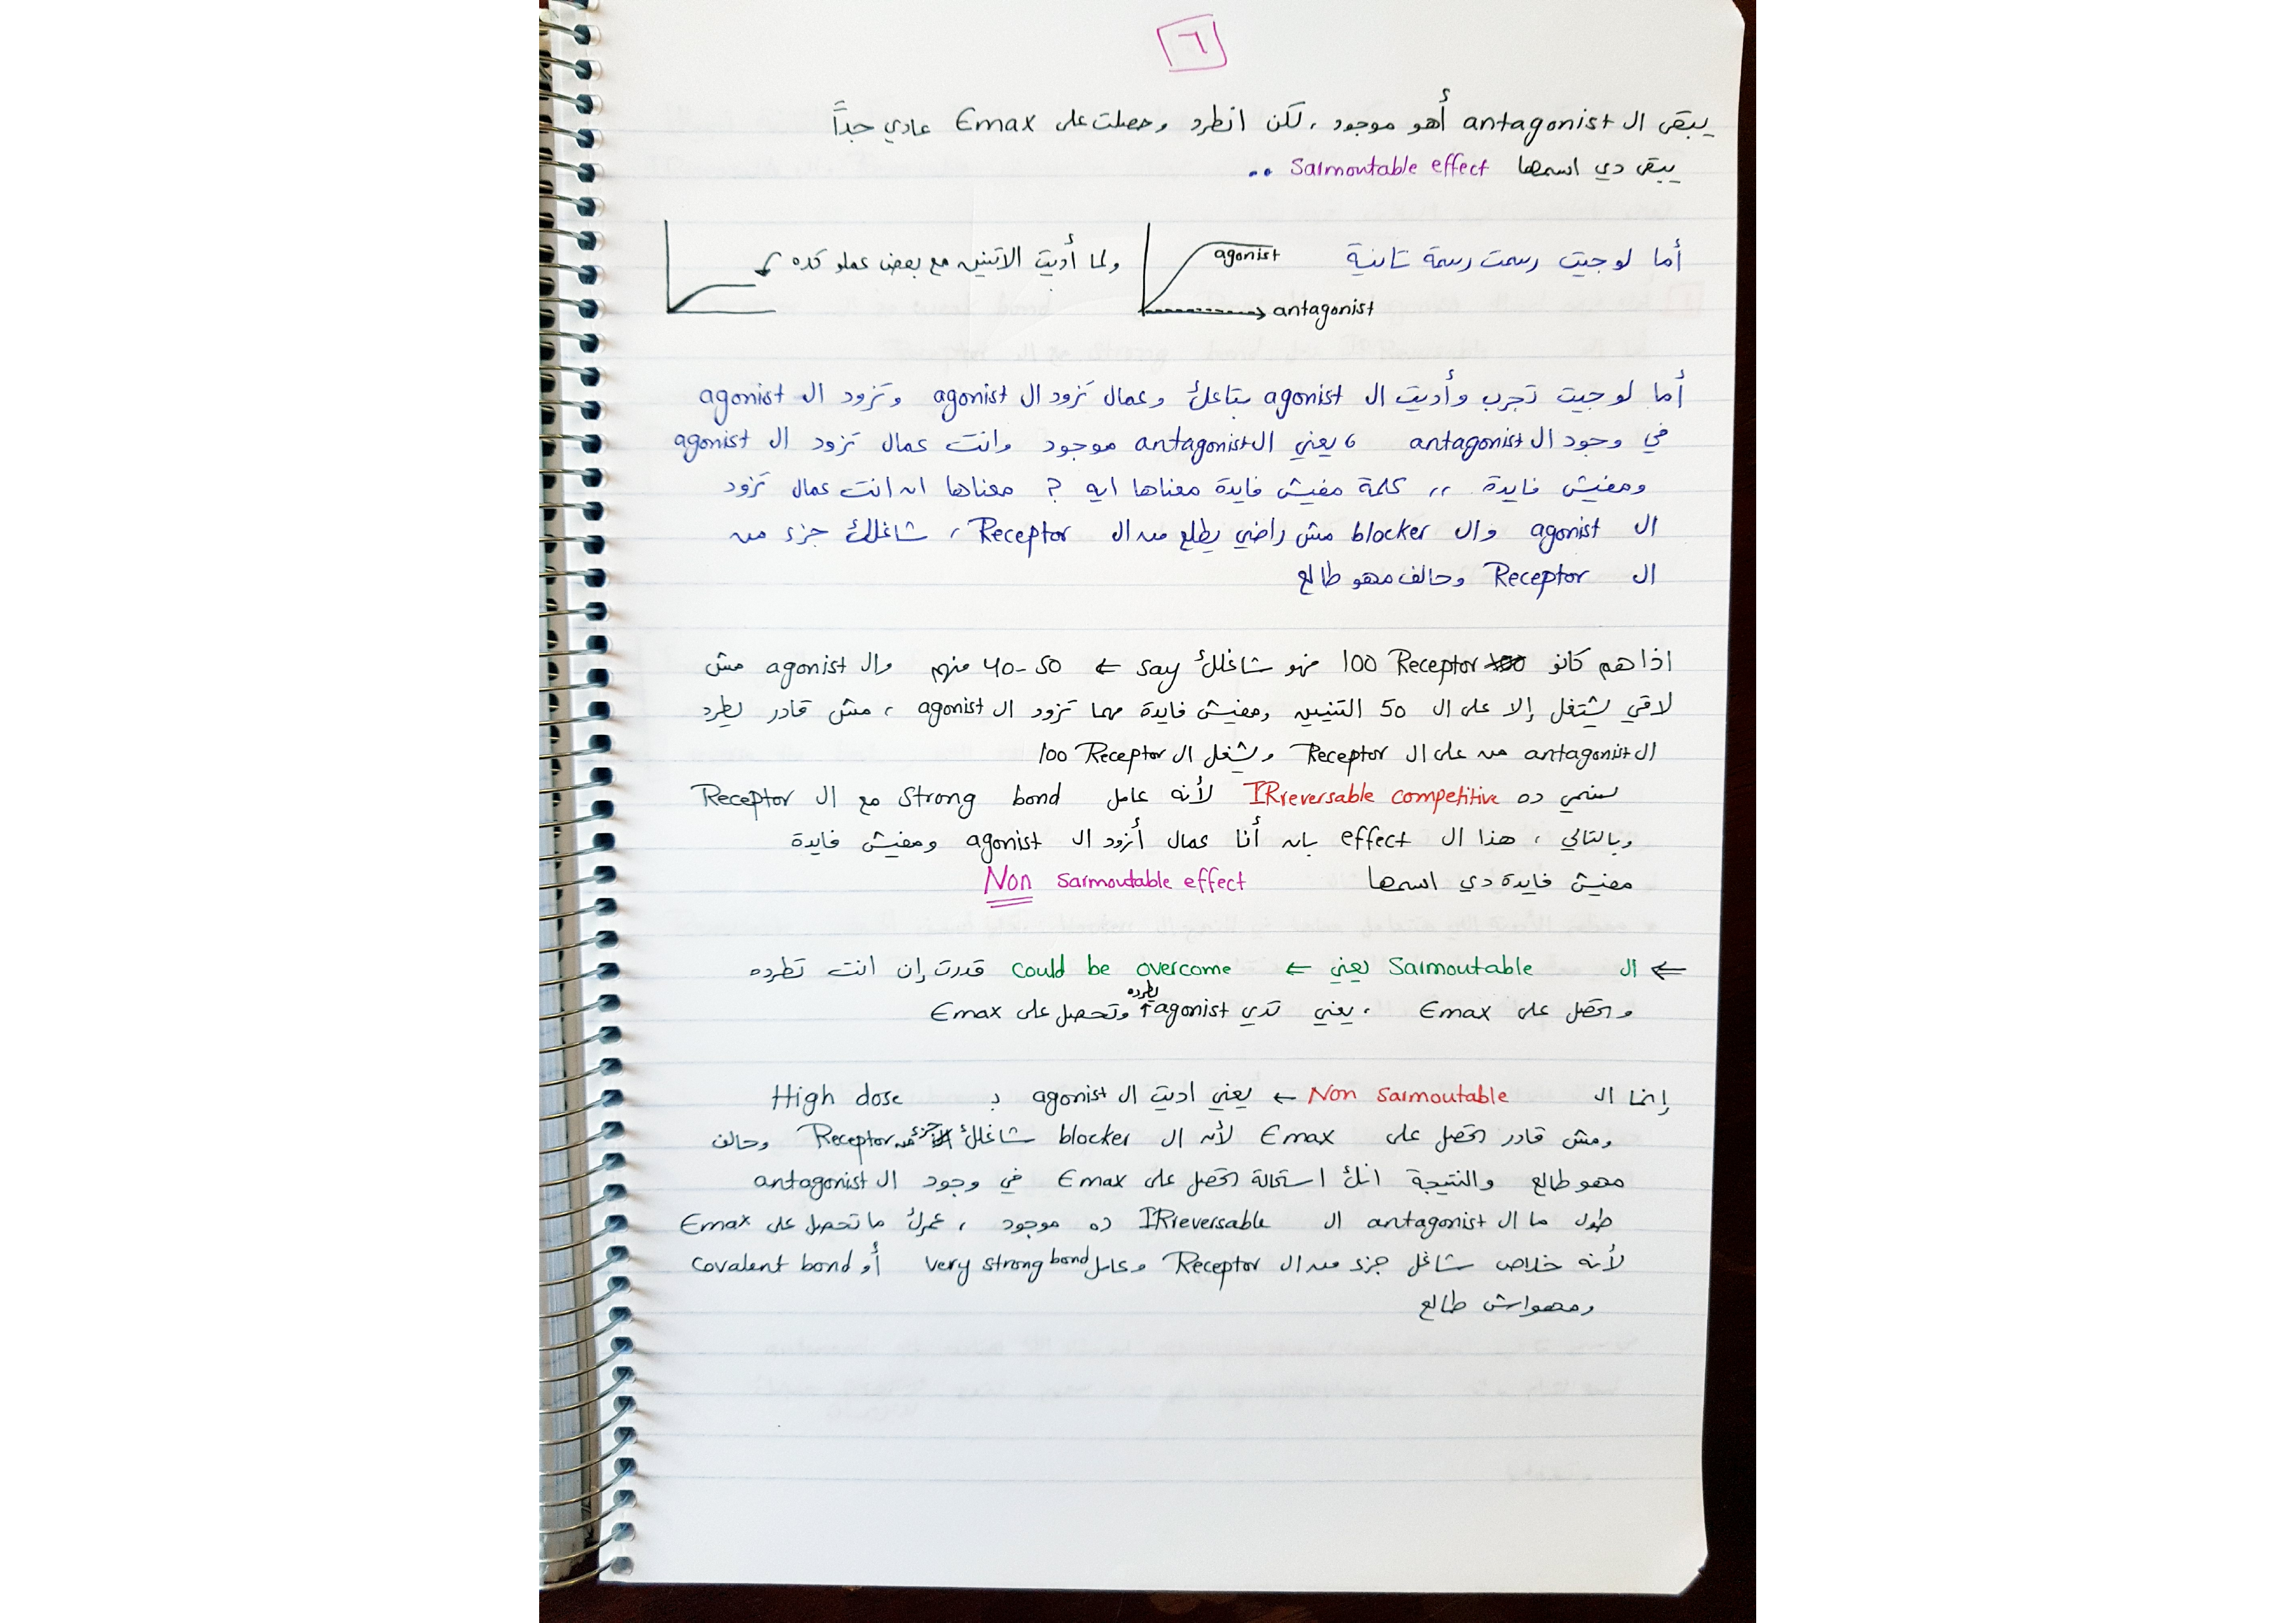 ٦
يبقى ال antagonist أهو موجود ، لكن انطرد وحصلت على Emax عادي جداً
يبقى دي اسمها Sarmoutable effect ..
أما لو جيت رسمت رسمة تانية
agonist
antagonist
ولما أديت الاتنين مع بعض عملو كده
أما لو جيت تجرب وأديت ال agonist بتاعك وعمال تزود ال agonist وتزود ال agonist
في وجود ال antagonist ، يعني ال antagonist موجود وانت عمال تزود ال agonist
ومفيش فايدة ,, كلمة مفيش فايدة معناها ايه ? معناها ان انت عمال تزود
ال agonist وال blocker مش راضي يطلع من ال Receptor ، شاغلك جزء من
ال Receptor وحالف مهو طالع
اذا هم كانو 100 Receptor فهو شاغلك say ← 40-50 منهم وال agonist مش
لاقي يشتغل إلا على ال 50 التنيين ومفيش فايدة مهما تزود ال agonist ، مش قادر يطرد
ال antagonist من على ال Receptor ويشغل ال 100 Receptor
نسمي ده IRreversable competitive لأنه عامل Strong bond مع ال Receptor
وبالتالي ، هذا ال effect بان أنا عمال أزود ال agonist ومفيش فايدة
مفيش فايدة دي اسمها Non Sarmoutable effect
← ال Sarmoutable يعني ← could be overcome قدرت إن انت تطرده
وتحصل على Emax ، يعني تدي ↑agonist يطرده وتحصل على Emax
إنما ال Non Sarmoutable ← يعني اديت ال agonist بـ High dose
ومش قادر تحصل على Emax لأن ال blocker شاغلك جزء من Receptor وحالف
مهو طالع والنتيجة انك استحالة تحصل على Emax في وجود ال antagonist
طول ما ال antagonist ال IRreversable ده موجود ، عمرك ما تحصل على Emax
لأنه خلاص شاغل جزء من ال Receptor وعامل very strong bond أو covalent bond
ومهواش طالع